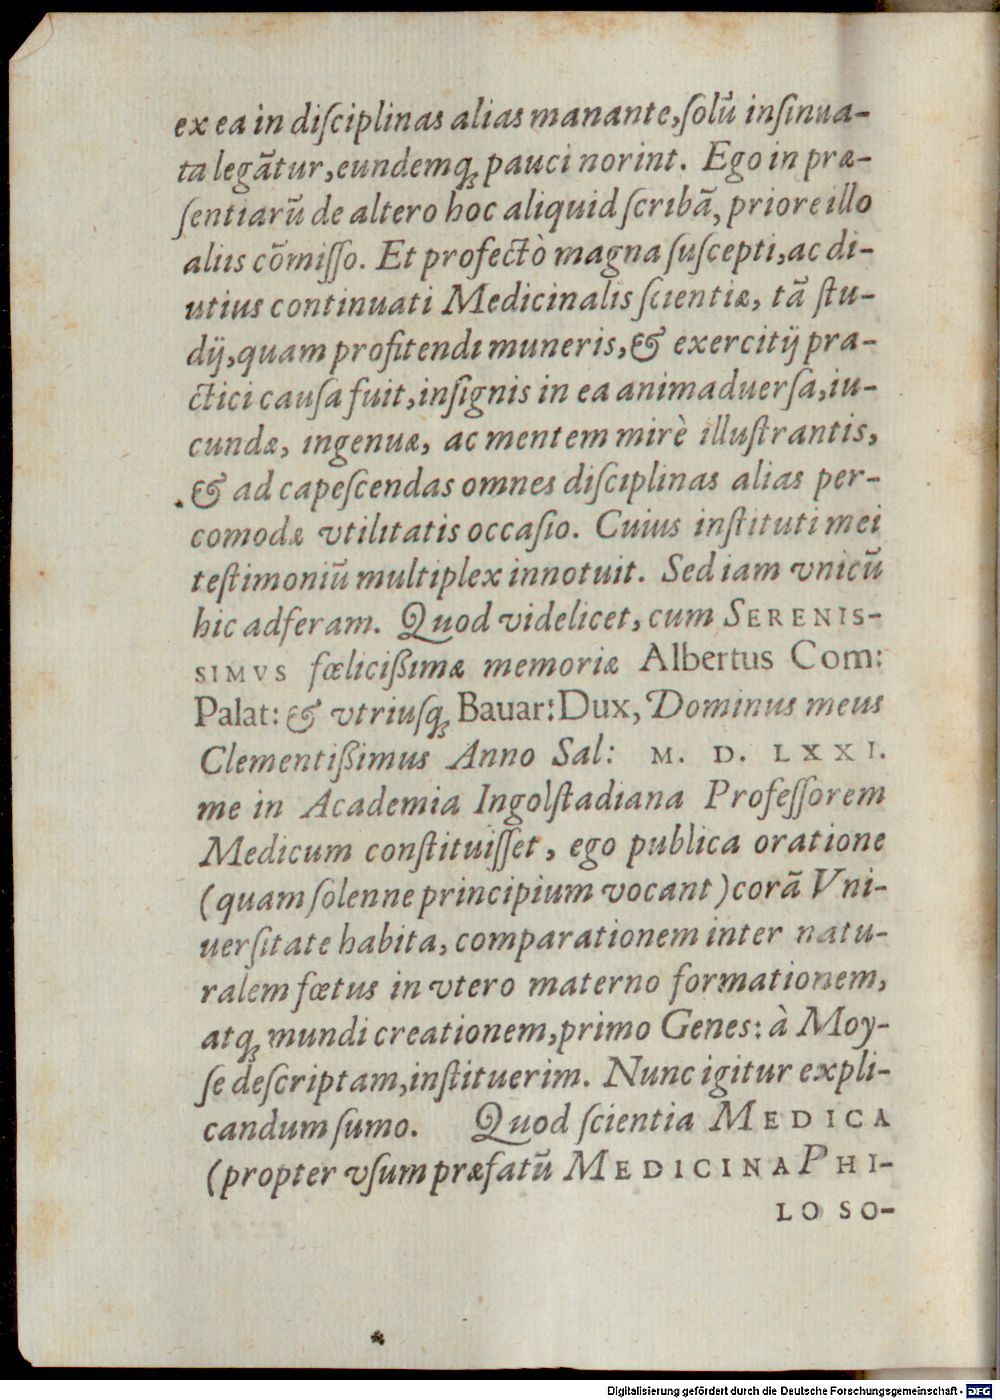 ex ea in diſciplinas alias manante, ſolũ inſinua-
ta legãtur, eundemq́ꝫ pauci norint. Ego in præ-
ſentiarũ de altero hoc aliquid ſcribã, priore illo
aliis cõmiſſo. Et profectò magna ſuſcepti, ac di-
utius continuati Medicinalis ſcientiæ, tã ſtu-
dij, quam profitendi muneris, & exercitij pra-
ctici cauſa fuit, inſignis in ea animaduerſa, iu-
cundæ, ingenuæ, ac mentem mirè illuſtrantis,
& ad capeſcendas omnes diſciplinas alias per-
comodæ vtilitatis occaſio. Cuius inſtituti mei
teſtimoniũ multiplex innotuit. Sed iam vnicũ
hic adferam. Quod videlicet, cum SERENIS-
SIMVS fœlicißimæ memoriæ Albertus Com:
Palat: & vtriuſqꝫ Bauar: Dux, Dominus meus
Clementißimus Anno Sal: M. D. LXXI.
me in Academia Ingolſtadiana Profeſſorem
Medicum conſtituiſſet, ego publica oratione
(quam ſolenne principium vocant) corã Vni-
uerſitate habita, comparationem inter natu-
ralem fœtus in vtero materno formationem,
atqꝫ mundi creationem, primo Geneſ: à Moy-
ſe deſcriptam, inſtituerim. Nunc igitur expli-
candum ſumo. Quod ſcientia MEDICA
(propter vſum præfatũ MEDICINA PHI-
LOSO-
Digitalisierung gefördert durch die Deutsche Forschungsgemeinschaft - DFG